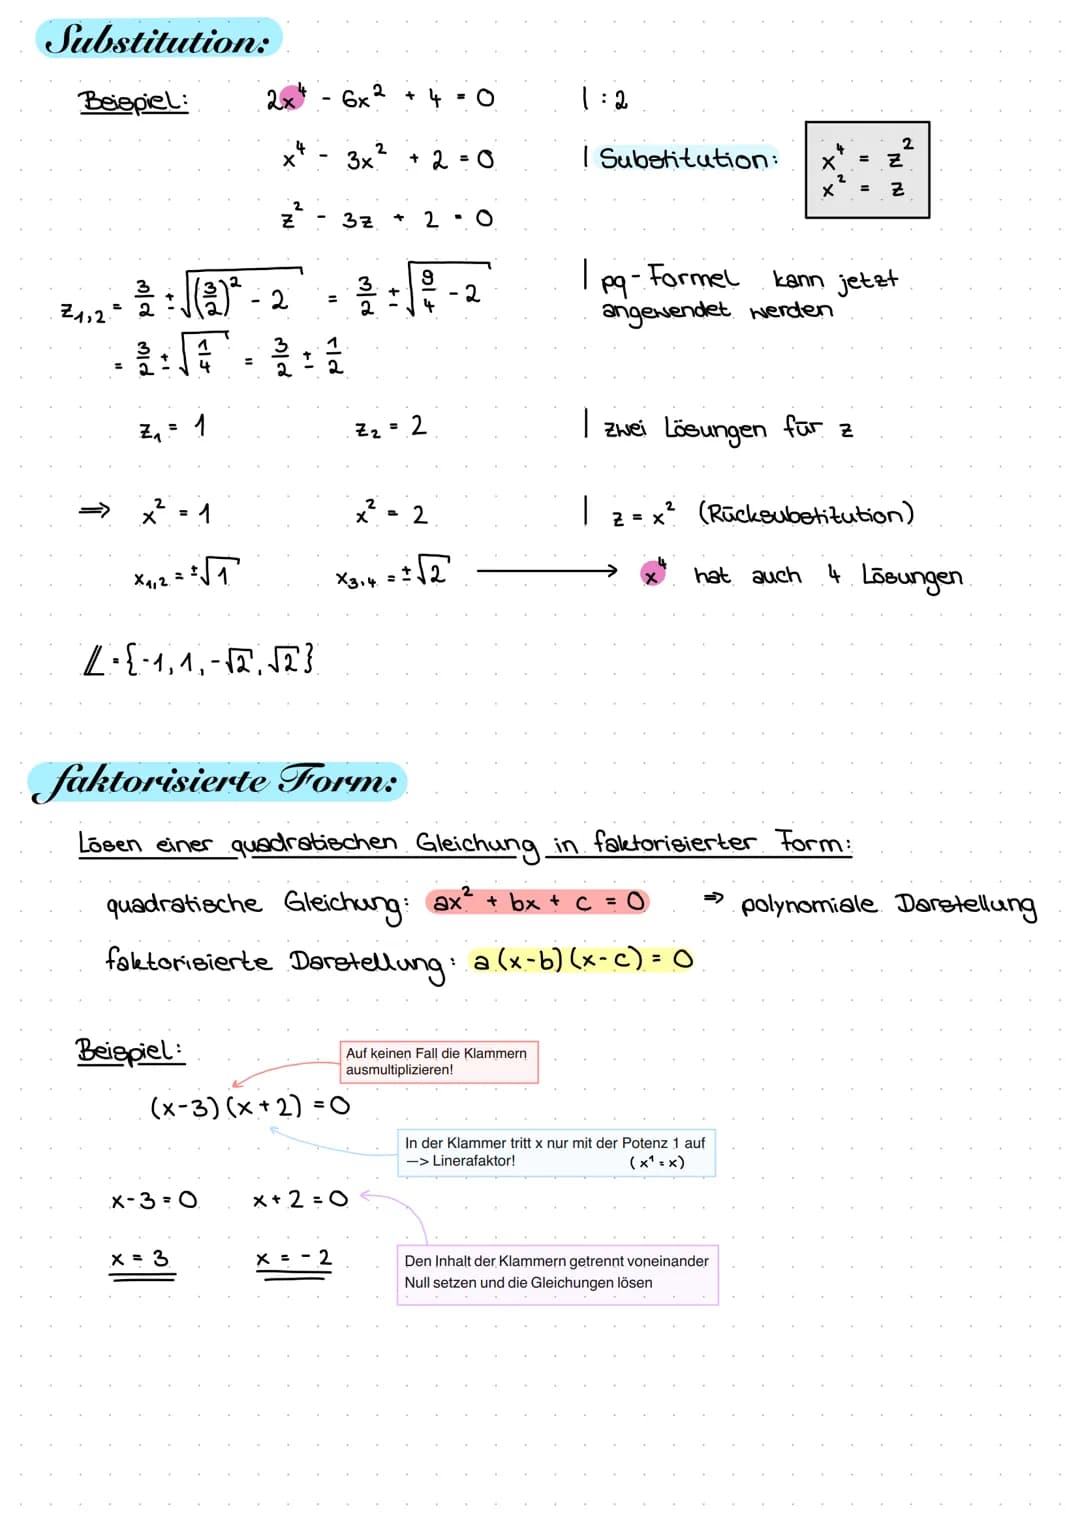 Substitution:
Beispiel: 2x⁴ - 6x² + 4 = 0 | : 2
x⁴ - 3x² + 2 = 0 | Substitution: x⁴ = z²
x² = z
z² - 3z + 2 = 0
z₁,₂ = 3/2 ± √((3/2)² - 2) = 3/2 ± √(9/4 - 2) | pq-Formel kann jetzt
angewendet werden
= 3/2 ± √(1/4) = 3/2 ± 1/2
z₁ = 1 z₂ = 2 | zwei Lösungen für z
⇒ x² = 1 x² = 2 | z = x² (Rücksubstitution)
x₁,₂ = ±√1 x₃,₄ = ±√2 → x⁴ hat auch 4 Lösungen
𝕃 = {-1, 1, -√2, √2}
faktorisierte Form:
Lösen einer quadratischen Gleichung in faktorisierter Form:
quadratische Gleichung: ax² + bx + c = 0 ⇒ polynomiale Darstellung
faktorisierte Darstellung: a(x-b)(x-c) = 0
Beispiel:
Auf keinen Fall die Klammern
ausmultiplizieren!
(x-3)(x+2) = 0
In der Klammer tritt x nur mit der Potenz 1 auf
—> Linerafaktor! (x¹ = x)
x-3 = 0 x+2 = 0
x = 3 x = -2
Den Inhalt der Klammern getrennt voneinander
Null setzen und die Gleichungen lösen